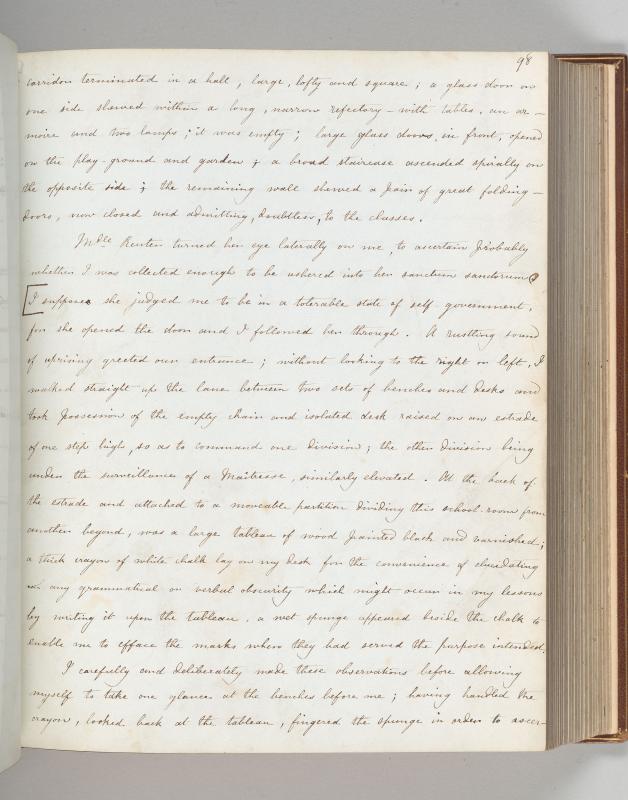 98
corridor terminated in a hall, large, lofty and square; a glass-door on
one side shewed within a long, narrow refectory - with tables, an ar-
moire and two lamps; it was empty; large glass doors, in front, opened
on the play-ground and garden; a broad staircase ascended spirally on
the opposite side; the remaining wall shewed a pair of great folding-
doors, now closed and admitting, doubtless, to the classes.
Mdle Reuter turned her eye laterally on me, to ascertain probably
whether I was collected enough to be ushered into her sanctum sanctorum
[I suppose she judged me to be in a tolerable state of self government,
for she opened the door and I followed her through. A rustling sound
of uprising greeted our entrance; without looking to the right or left, I
walked straight up the lane between two sets of benches and desks and
took possession of the empty chair and isolated desk raised on an estrade
of one step high, so as to command one division; the other division being
under the surveillance of a Maîtresse, similarly elevated. At the back of
the estrade and attached to a moveable partition dividing this school-room from
another beyond, was a large tableau of wood painted black and varnished;
a thick crayon of white chalk lay on my desk for the convenience of elucidating
any grammatical or verbal obscurity which might occur in my lessons
by writing it upon the tableau, a wet spunge appeared beside the chalk to
enable me to efface the marks when they had served the purpose intended.
I carefully and deliberately made these observations before allowing
myself to take one glance at the benches before me; having handled the
crayon, looked back at the tableau, fingered the spunge in order to ascer-